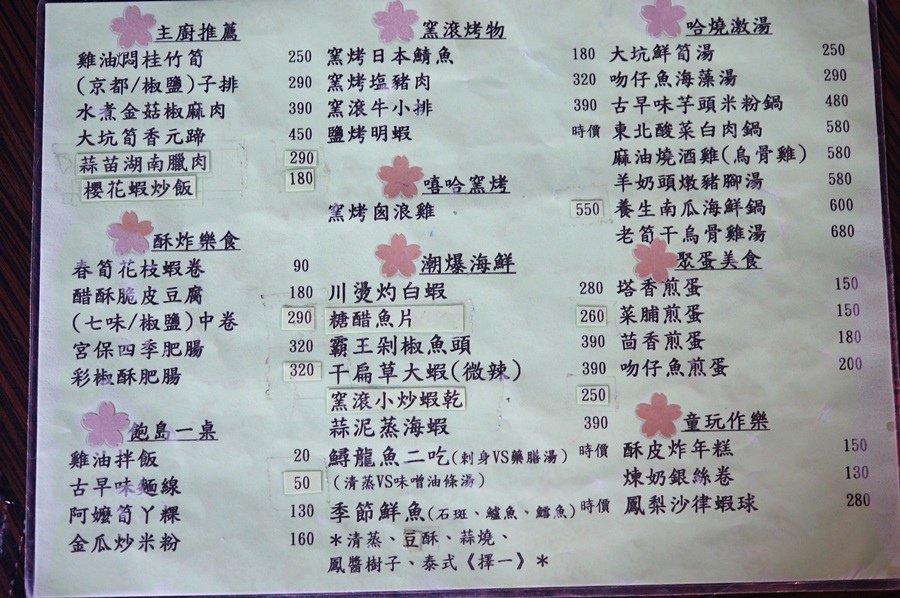 主廚推薦
雞油悶桂竹筍 250
(京都/椒鹽)子排 290
水煮金菇椒麻肉 390
大坑筍香元蹄 450
蒜苗湖南臘肉 290
櫻花蝦炒飯 180
酥炸樂食
春筍花枝蝦卷 90
醋酥脆皮豆腐 180
(七味/椒鹽)中卷 290
宮保四季肥腸 320
彩椒酥肥腸 320
飽島一桌
雞油拌飯 20
古早味麵線 50
阿嬤筍丫粿 130
金瓜炒米粉 160
窯滾烤物
窯烤日本鯖魚 180
窯烤塩豬肉 320
窯滾牛小排 390
鹽烤明蝦 時價
嘻哈窯烤
窯烤囪浪雞 550
潮爆海鮮
川燙灼白蝦 280
糖醋魚片 260
霸王剁椒魚頭 390
干扁草大蝦(微辣) 390
窯滾小炒蝦乾 250
蒜泥蒸海蝦 390
鱘龍魚二吃(刺身VS藥膳湯) 時價
(清蒸VS味噌油條湯)
季節鮮魚(石斑、鱸魚、鱈魚) 時價
*清蒸、豆酥、蒜燒、
鳳醬樹子、泰式《擇一》*
哈燒激湯
大坑鮮筍湯 250
吻仔魚海藻湯 290
古早味芋頭米粉鍋 480
東北酸菜白肉鍋 580
麻油燒酒雞(烏骨雞) 580
羊奶頭燉豬腳湯 580
養生南瓜海鮮鍋 600
老筍干烏骨雞湯 680
聚蛋美食
塔香煎蛋 150
菜脯煎蛋 150
茴香煎蛋 180
吻仔魚煎蛋 200
童玩作樂
酥皮炸年糕 150
煉奶銀絲卷 130
鳳梨沙律蝦球 280